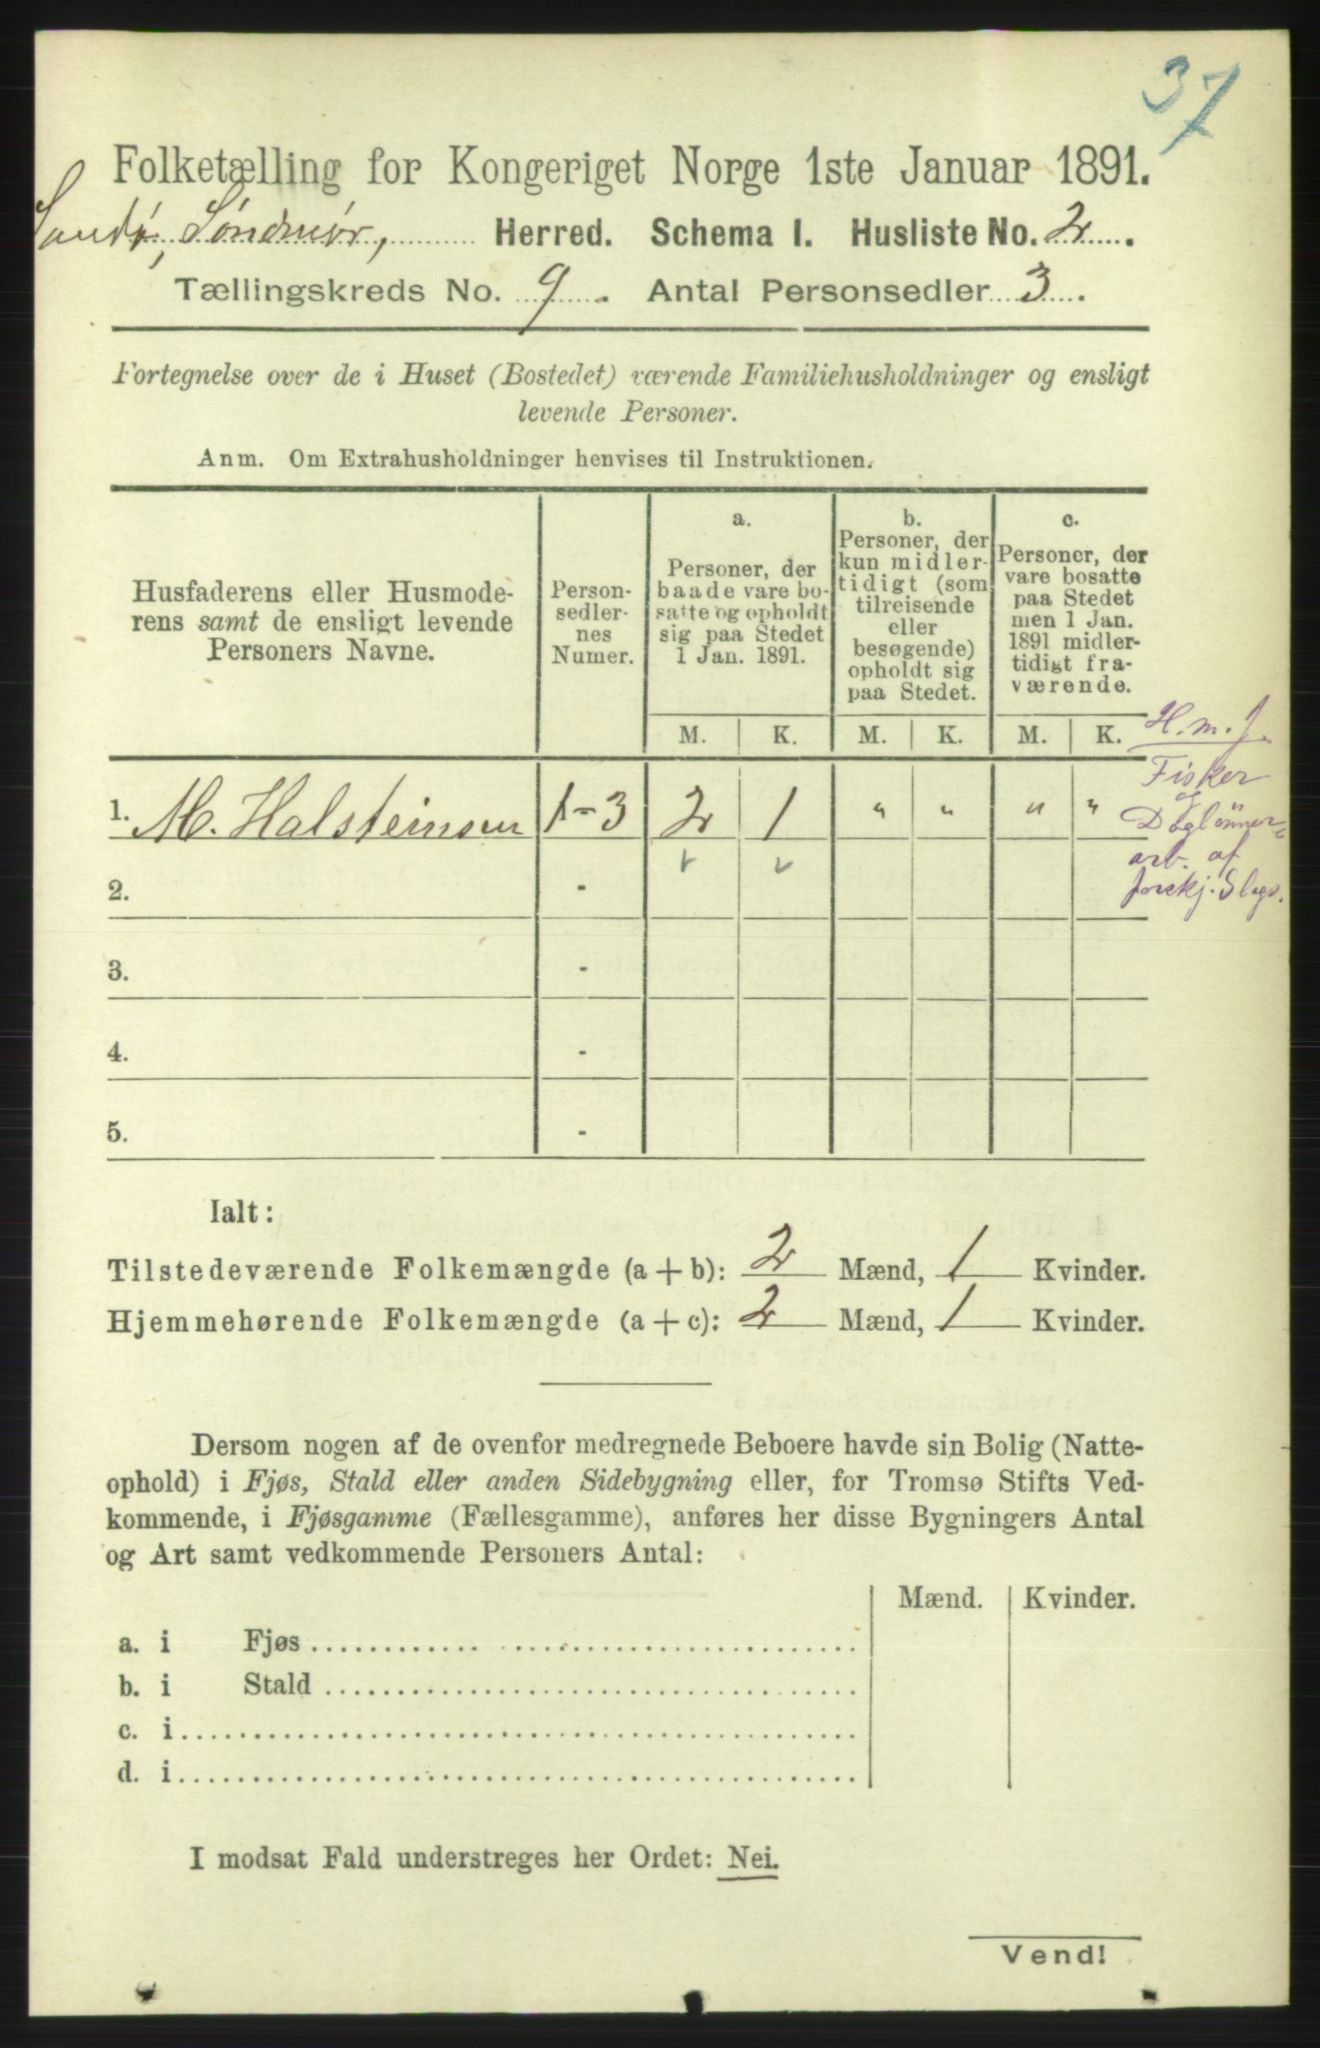 37
Folketælling for Kongeriget Norge 1ste Januar 1891.
Sandø, Søndmør, Herred. Schema I. Husliste No. 2.
Tællingskreds No. 9. Antal Personsedler 3.
Fortegnelse over de i Huset (Bostedet) værende Familiehusholdninger og ensligt
levende Personer.
Anm. Om Extrahusholdninger henvises til Instruktionen.
Husfaderens eller Husmode-
rens samt de ensligt levende
Personers Navne.
Person-
sedler-
nes
Numer.
a.
Personer, der
baade vare bo-
satte og opholdt
sig paa Stedet
1 Jan. 1891.
b.
Personer, der
kun midler-
tidigt (som
tilreisende
eller
besøgende)
opholdt sig
paa Stedet.
c.
Personer, der
vare bosatte
paa Stedet
men 1 Jan.
1891 midler-
tidigt fra-
værende.
M. K. M. K. M. K.
H. m. J.
Fisker
og
Daglönner-
arb. af
forskj. Slags.
1. M. Halsteinsen 1-3 2 1 " " " "
2. -
3. -
4. -
5. -
Ialt:
Tilstedeværende Folkemængde (a + b): 2 Mænd, 1 Kvinder.
Hjemmehørende Folkemængde (a + c): 2 Mænd, 1 Kvinder.
Dersom nogen af de ovenfor medregnede Beboere havde sin Bolig (Natte-
ophold) i Fjøs, Stald eller anden Sidebygning eller, for Tromsø Stifts Ved-
kommende, i Fjøsgamme (Fællesgamme), anføres her disse Bygningers Antal
og Art samt vedkommende Personers Antal:
Mænd. Kvinder.
a. i Fjøs
b. i Stald
c. i
d. i
I modsat Fald understreges her Ordet: Nei.
Vend!